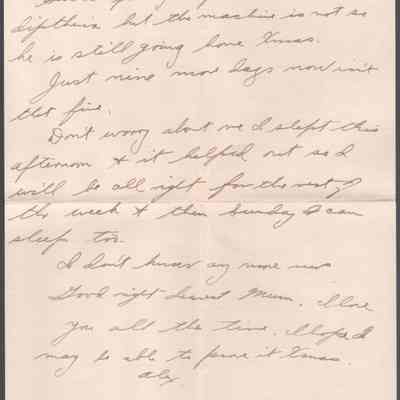 diptheria but the machine is not so
he is still going home Xmas.
Just nine more days now isn't
that fine.
Don't worry about me I slept this
afternoon & it helped out so I
will be all right for the rest of
the week & then Sunday I can
sleep too.
I don't know any more news
Good night dearest Mum. I love
you all the time. I hope I
may be able to prove it Xmas.
Alex